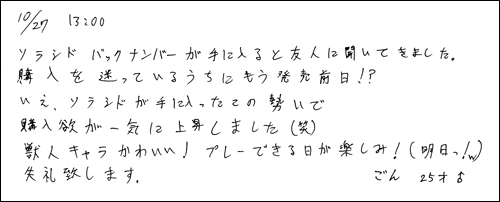 10/27 13:00
ソラシド バックナンバーが手に入ると友人に聞いてきました。
購入を迷っているうちにもう発売前日!?
いえ、ソラシドが手に入ったこの勢いで
購入欲が一気に上昇しました(笑)
獣人キャラかわいい! プレーできる日が楽しみ!(明日っ!w)
失礼致します。 ごん 25才♂